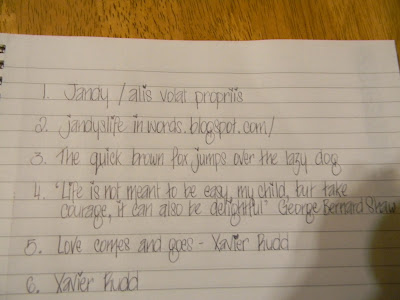 1. Jandy / alis volat propriis
2. jandyslife inwords.blogspot.com/
3. The quick brown fox jumps over the lazy dog
4. "Life is not meant to be easy, my child, but take
courage, it can also be delightful" George Bernard Shaw
5. Love comes and goes - Xavier Rudd
6. Xavier Rudd